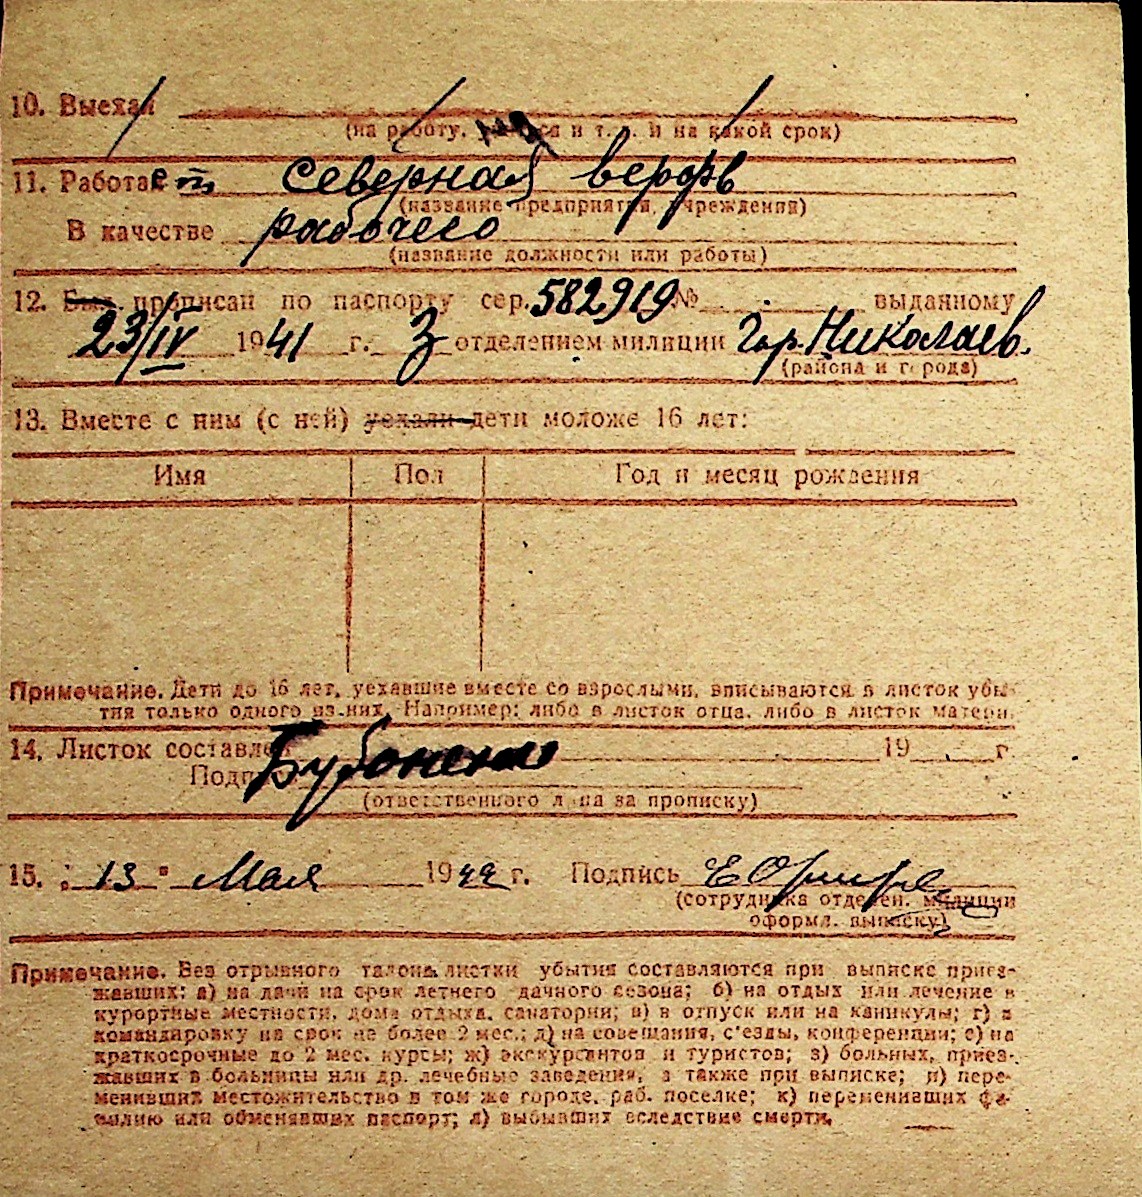 10. Выехал
(на работу, и т. д. и на какой срок)
11. Работает Северная верфь
(название предприятия, учреждения)
В качестве рабочего
(название должности или работы)
12. Был прописан по паспорту сер. 582919 № выданному
23/IV 1941 г. 3 отделением милиции Гор. Николаев.
(района и города)
13. Вместе с ним (с ней) уехали дети моложе 16 лет:
Имя Пол Год и месяц рождения
Примечание. Дети до 16 лет, уехавшие вместе со взрослыми, вписываются в листок убы-
тия только одного из них. Например: либо в листок отца, либо в листок матери.
14. Листок составлен 19 г
Подпись
(ответственного лица за прописку)
15. „13" Мая 1944 г. Подпись
(сотрудника отделен. милиции
оформл. выписку)
Примечание. Без отрывного талона листки убытия составляются при выписке приез-
жавших: а) на дачи на срок летнего дачного сезона; б) на отдых или лечение в
курортные местности, дома отдыха, санатории; в) в отпуск или на каникулы; г) в
командировку на срок не более 2 мес.; д) на совещания, с'езды, конференции; е) на
краткосрочные до 2 мес. курсы; ж) экскурсантов и туристов; з) больных, приез-
жавших в больницы или др. лечебные заведения, а также при выписке; и) пере-
менивших местожительство в том же городе, раб. поселке; к) переменивших фа-
милию или обменявших паспорт; л) выбывших вследствие смерти.